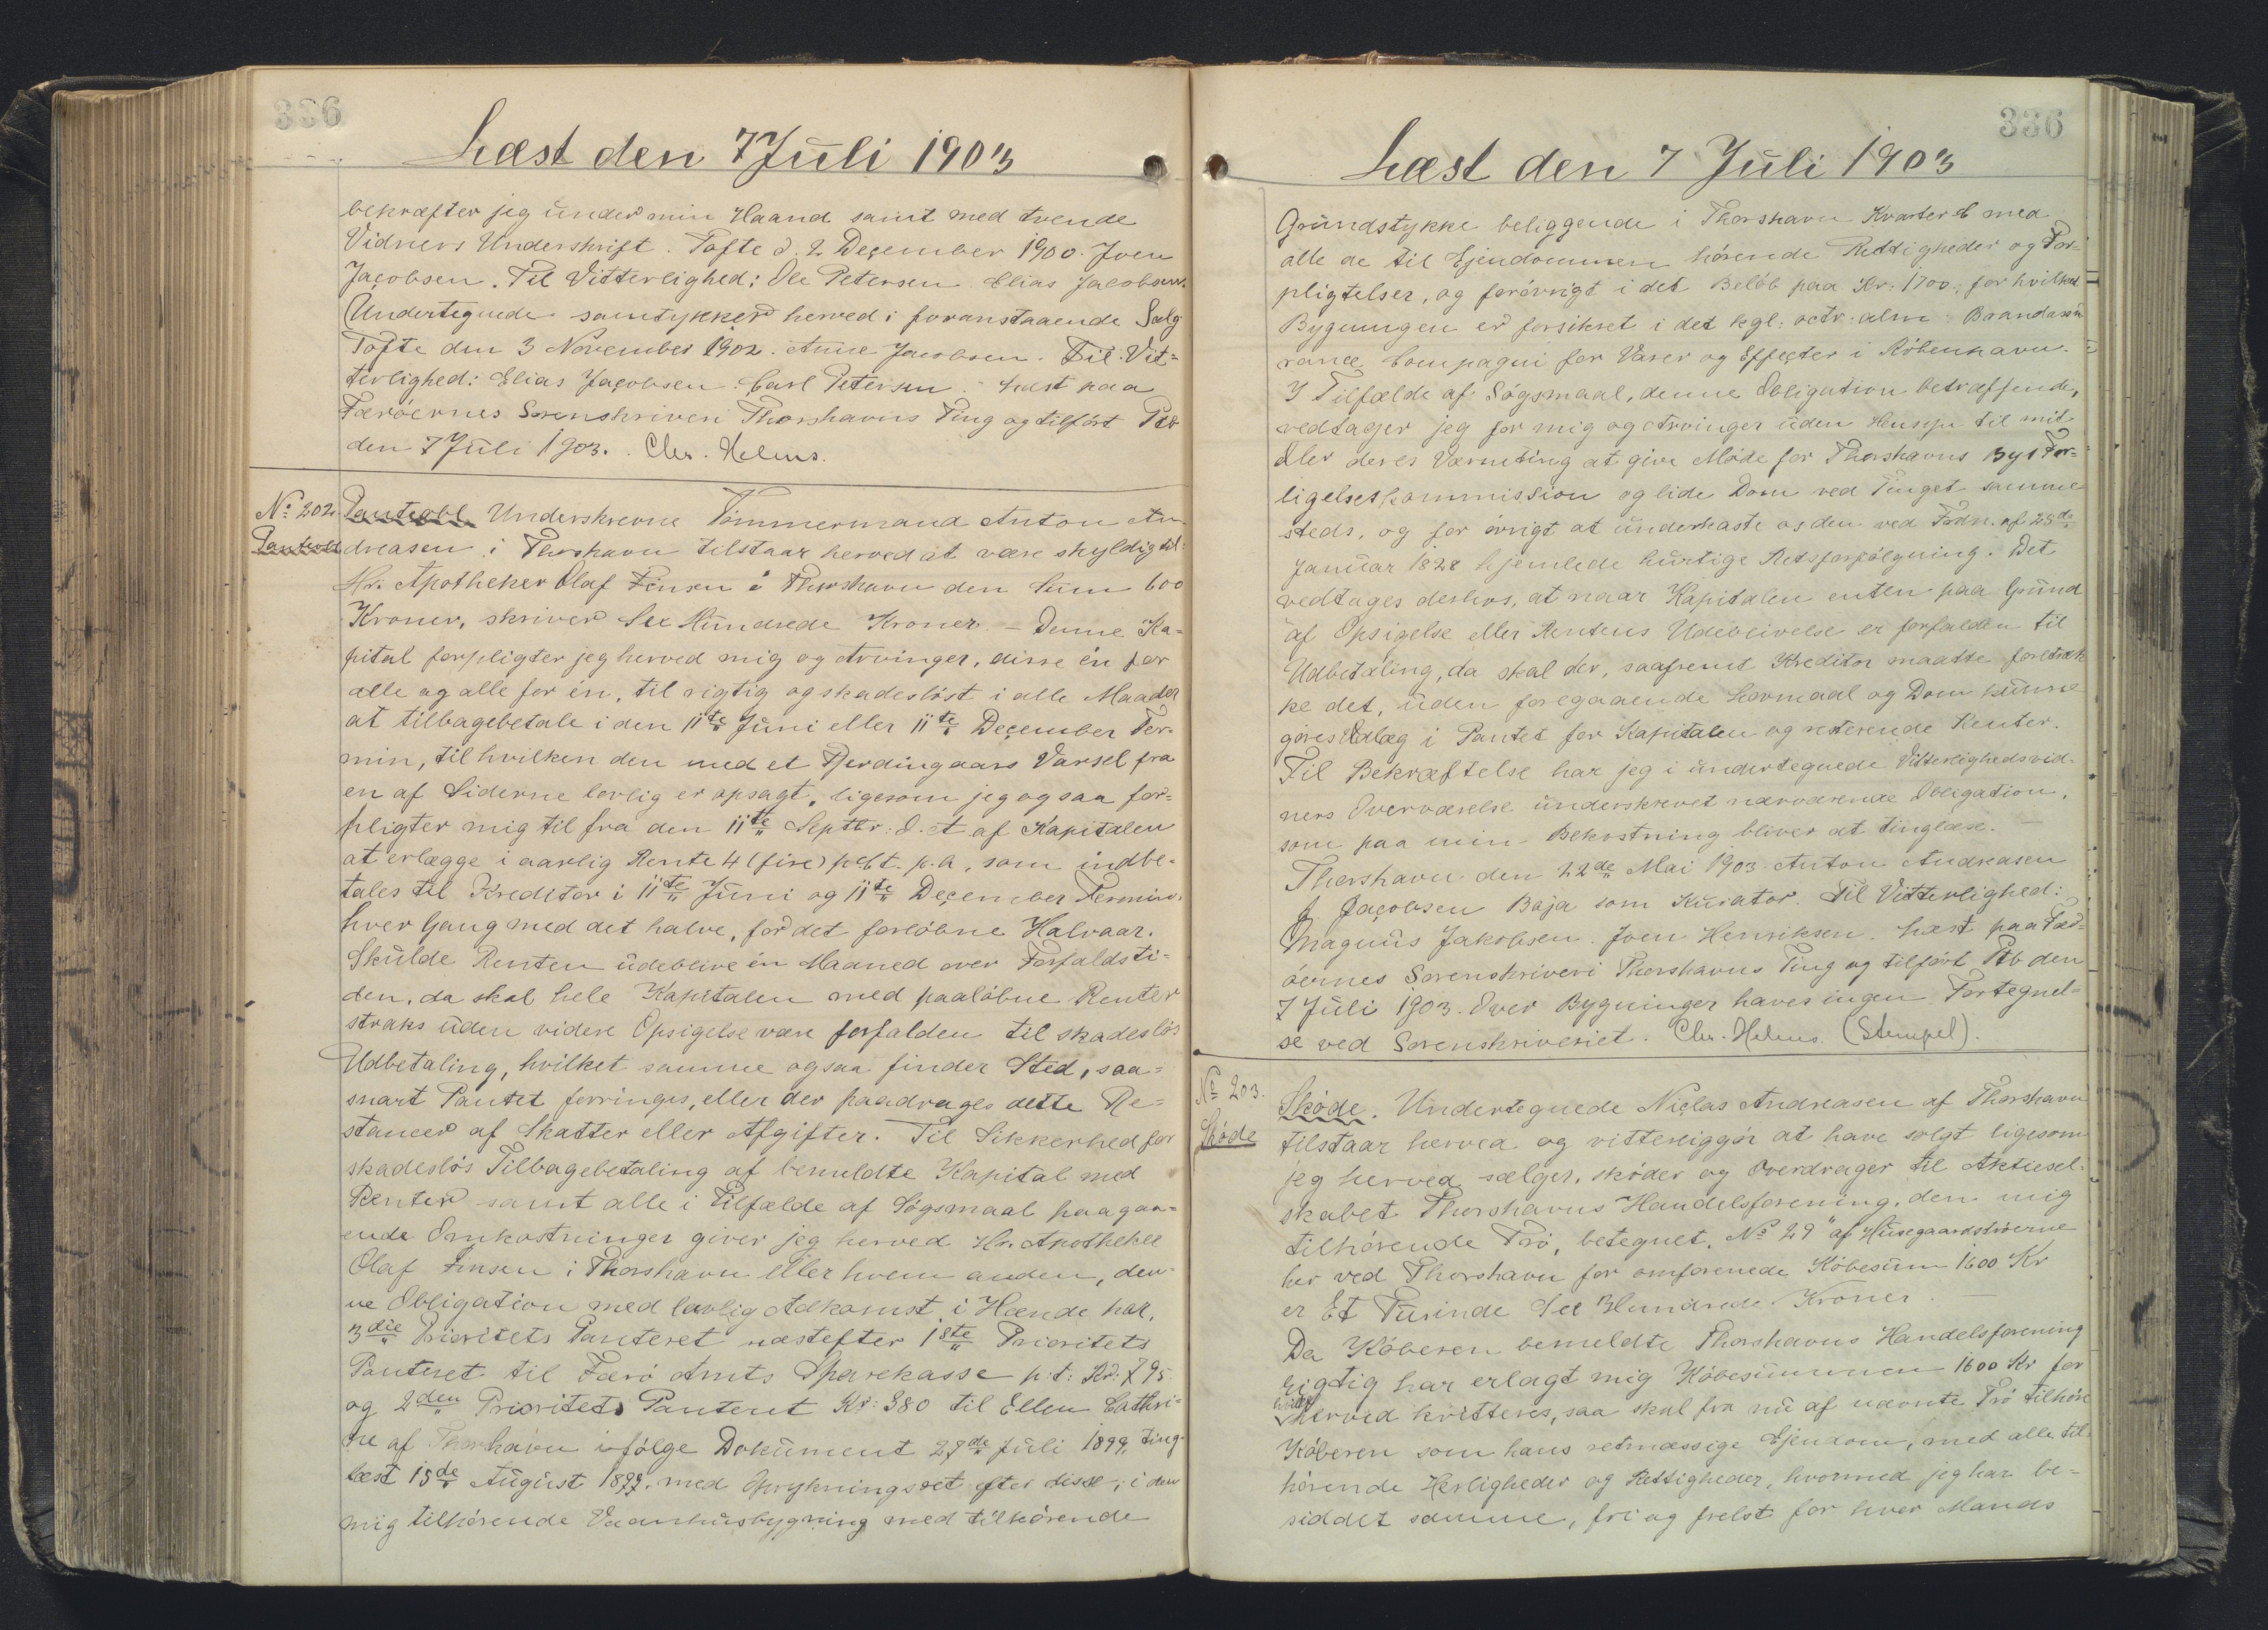 336
Læst den 7 Juli 1903
bekræfter jeg under min Haand samt med tvende
Vidners Underskrift. Tofte d. 2 December 1900. Joen
Jacobsen. Til Vitterlighed: Ole Petersen. Elias Jacobsen.
Undertegnede samtykker herved i foranstaaende Salg
Tofte den 3 November 1902. Anne Jacobsen. Til Vit-
terlighed: Elias Jacobsen. Carl Petersen. Læst paa
Færöernes Sorenskriveri Thorshavns Ting og tilfört Ptb
den 7 Juli 1903. Chr. Helms.
No. 202. Pantobl. Underskrevne Tömmermand Anton An-
Pantobl dreasen i Thorshavn tilstaar herved at være skyldig til
Hr. Apotheker Olaf Finsen i Thorshavn den Sum 600
Kroner, skriver Sex Hundrede Kroner. – Denne Ka-
pital forpligter jeg herved mig og Arvinger, disse én for
alle og alle for én, til rigtig og skadeslöst i alle Maader
at tilbagebetale i den 11te Juni eller 11te December Ter-
min, til hvilken den med et Fjerdingaars Varsel fra
en af Siderne lovlig er opsagt, ligesom jeg ogsaa for-
pligter mig til fra den 11te Septbr. d. A. af Kapitalen
at erlægge i aarlig Rente 4 (fire) pCt. p.a., som indbe-
tales til Kreditor i 11te Juni og 11te December Termin,
hver Gang med det halve, for det forlöbne Halvaar.
Skulde Renten udeblive én Maaned over Forfaldsti-
den, da skal hele Kapitalen med paalöbne Renter
straks uden videre Opsigelse være forfalden til skadeslös
Udbetaling, hvilket samme ogsaa finder Sted, saa-
snart Pantet forringes, eller der paadrages dette Re-
stancer af Skatter eller Afgifter. Til Sikkerhed for
skadeslös Tilbagebetaling af bemeldte Kapital med
Renter samt alle i Tilfælde af Sögsmaal paagaa-
ende Omkostninger giver jeg herved Hr. Apotheker
Olaf Finsen i Thorshavn eller hvem anden, den-
ne Obligation med lovlig Adkomst i Hænde har,
3die Prioritets Panteret næstefter 1ste Prioritets
Panteret til Færö Amts Sparekasse p.t. Kr: 795
og 2den Prioritets Panteret Kr: 380 til Ellen Cathri-
ne af Thorshavn ifölge Dokument 27de Juli 1899, ting-
læst 15de August 1899, med Oprykningsret efter disse, i den
mig tilhörende Vaanhusbygning med tilhörende
336
Læst den 7 Juli 1903
Grundstykke beliggende i Thorshavn Kvarter med
alle de til Ejendommen hörende Rettigheder og For-
pligtelser, og forövrigt i det Belöb paa Kr: 1700, for hvilket
Bygningen er forsikret i det kgl. octr. alm. Brandassu-
rance Compagni for Varer og Effecter i Köbenhavn.
I Tilfælde af Sögsmaal, denne Obligation betræffende,
vedtager jeg for mig og Arvinger uden Hensyn til mit
eller deres Værneting at give Möde for Thorshavns Bys For-
ligelseskommission og lide Dom ved Tinget samme
steds, og for övrigt at underkaste os den ved Frdn. af 25de
Januar 1828 hjemlede hurtige Retsforfölgning. Det
vedtages derhos, at naar Kapitalen enten paa Grund
af Opsigelse eller Rentens Udeblivelse er forfalden til
Udbetaling, da skal der, saafremt Kreditor maatte foretræk
ke det, uden foregaaende Lovmaal og Dom kunne
göres Udlæg i Pantet for Kapitalen og resterende Renter.
Til Bekræftelse har jeg i undertegnede Vitterlighedsvid-
ners Overværelse underskrevet nærværende Obligation,
som paa min Bekostning bliver at tinglæse. –
Thorshavn den 22de Mai 1903 Anton Andreasen
J. Jacobsen Baja som Kurator. Til Vitterlighed:
Magnus Jakobsen. Joen Henriksen. Læst paa Fær-
öernes Sorenskriveri Thorshavns Ting og tilfört Ptb den
7 Juli 1903. Over Bygninger haves ingen Fortegnel-
se ved Sorenskriveriet. Chr. Helms. (Stempel).
No. 203. Sköde. Undertegnede Niclas Andreasen af Thorshavn
Sköde tilstaar herved og vitterliggör at have solgt ligesom
jeg herved sælger, sköder og overdrager til Aktiesel-
skabet Thorshavns Handelsforening, den mig
tilhörende Trö, betegnet, No. 29 af Husegaardströerne
her ved Thorshavn for omforenede Köbesum 1600 Kr
er Et Tusinde Sex Hundrede Kroner. –
Da Köberen bemeldte Thorshavns Handelsforening
rigtig har erlagt mig Köbesummen 1600 Kr for
hvilke herved kvitteres, saa skal fra nu af nævnte Trö tilhöre
Köberen som hans retmæssige Ejendom, med alle til-
hörende Herligheder og Rettigheder, hvormed jeg har be-
siddet samme, fri og frelst for hver Mands